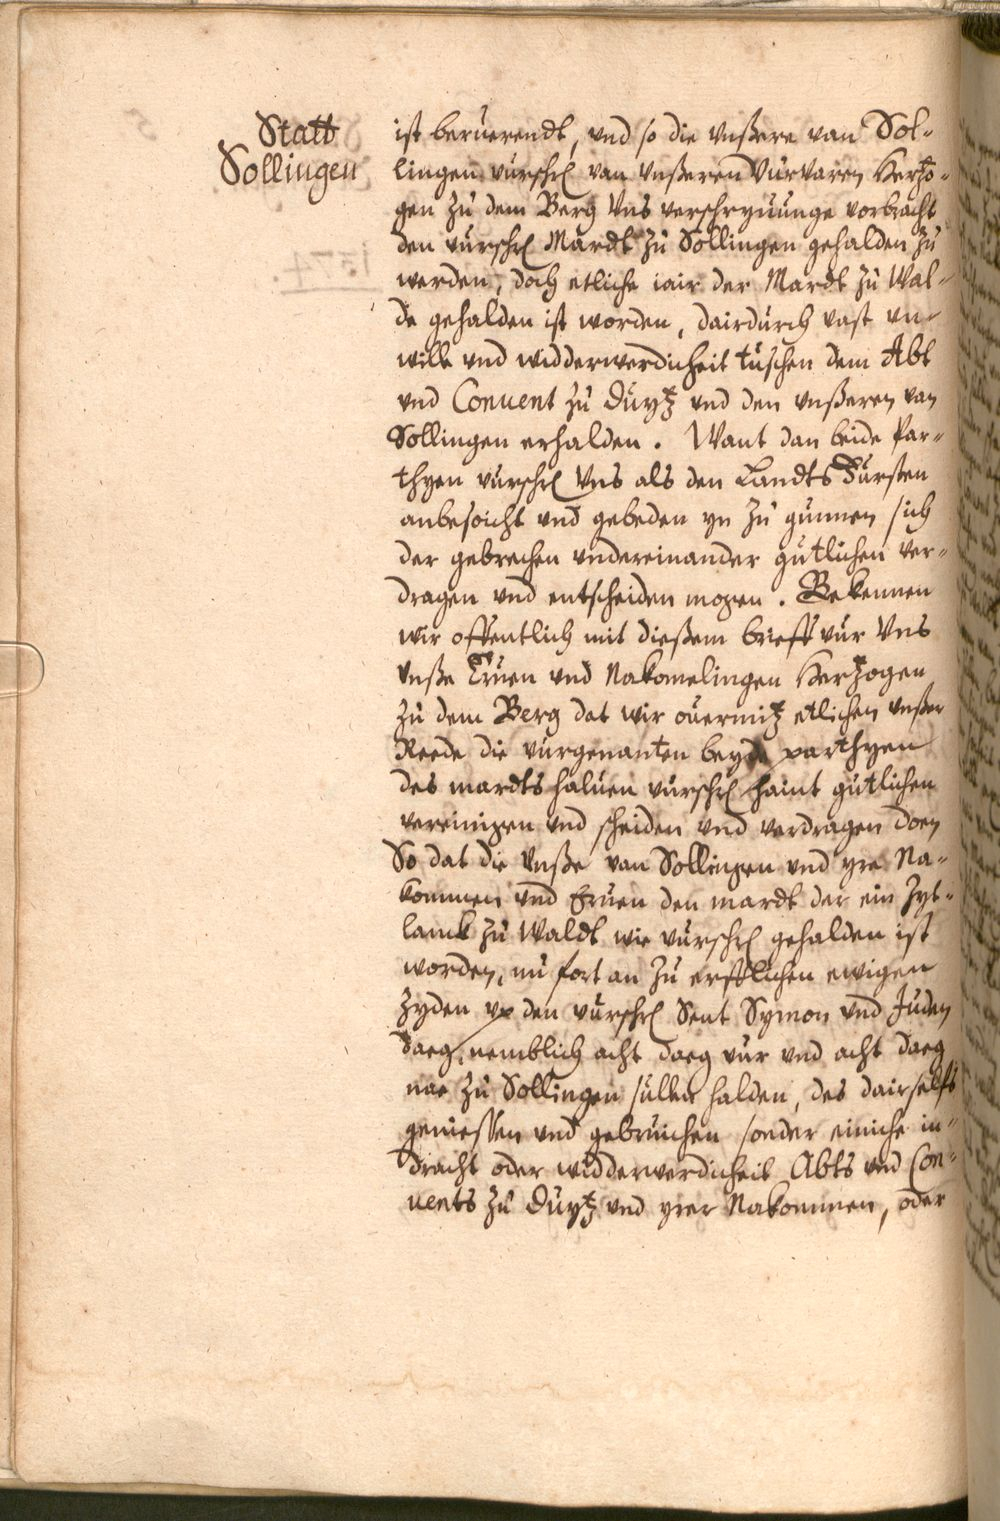 Statt
Sollingen
ist beruerendt, vnd so die vnßere van Sol-
lingen vurschr van vnßeren Vurvaren Hertzo-
gen zu dem Berg Vns verschryuunge vorbracht
den vurschr Mardt zu Sollingen gehalden zu
werden, doch etliche iair der Mardt zu Wal-
de gehalden ist worden, dairdurch vast vn-
will vnd widderwerdicheit tuschen dem Abt
vnd Conuent zu Duytz vnd den vnßeren van
Sollingen erhalden. Want dan beide Par-
thyen vurschr Vns als den Landts Fursten
anbesoicht vnd gebeden yn zu gunnen sich
der gebrechen vndereinander gutlichen ver-
dragen vnd entscheiden mogen. Bekennen
wir offentlich mit dießem brieff vur Vns
Vnße Eruen vnd Nakomelingen Hertzogen
zu dem Berg dat wir ouermitz etlichen vnßer
Reede die vurgenanten beyde parthyen
des mardts haluen vurschr haint gutlichen
vereinigen vnd scheiden vnd verdragen doen
So dat die Vnße van Sollingen vnd yre Na-
kommen vnd Eruen den mardt der ein Zyt-
lank zu Waldt wie vurschr gehalden ist
worden, nu fort an zu erfflichen ewigen
Zyden vp den vurschr Sent Symon vnd Juden
daeg, nemblich acht daeg vur vnd acht daeg
nae zu Sollingen sullen halden, des dairselfs
geniessen vnd gebruichen sonder einiche in-
dracht oder widderwerdicheit Abts vnd Con-
uents zu Duytz vnd yrer Nakommen, oder